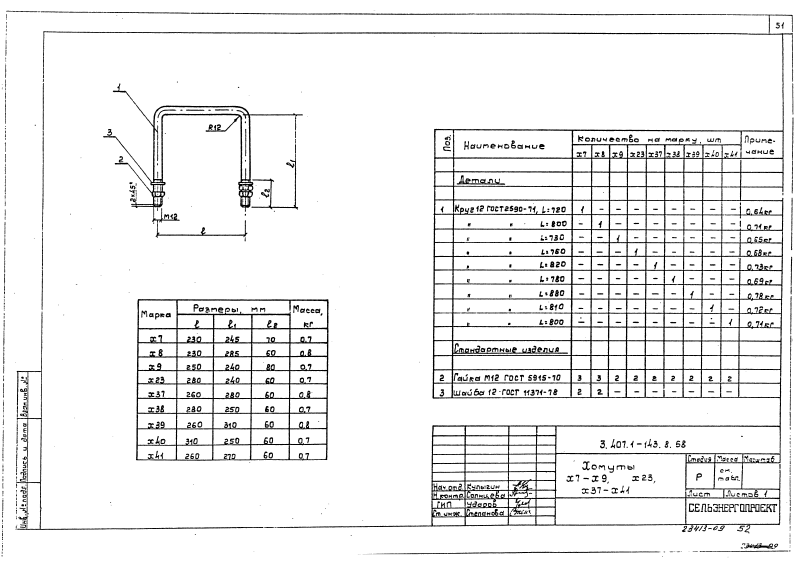 51
1
3
2
R12
ℓ1
ℓ2
2×45°
М12
ℓ
Марка Размеры, мм Масса, кг
ℓ ℓ1 ℓ2
х7 230 245 70 0,7
х8 230 285 60 0,8
х9 250 240 80 0,7
х23 280 240 60 0,7
х37 260 280 60 0,8
х38 280 250 60 0,7
х39 260 310 60 0,8
х40 310 250 60 0,7
х41 260 270 60 0,7
Поз. Наименование Количество на марку, шт Примечание
х7 х8 х9 х23 х37 х38 х39 х40 х41
Детали
1 Круг 12 ГОСТ 2590-71, L=720 1 – – – – – – – – 0,64кг
" " L=800 – 1 – – – – – – – 0,71кг
" " L=730 – – 1 – – – – – – 0,65кг
" " L=760 – – – 1 – – – – – 0,68кг
" " L=820 – – – – 1 – – – – 0,73кг
" " L=780 – – – – – 1 – – – 0,69кг
" " L=880 – – – – – – 1 – – 0,78кг
" " L=810 – – – – – – – 1 – 0,72кг
" " L=800 – – – – – – – – 1 0,71кг
Стандартные изделия
2 Гайка М12 ГОСТ 5915-70 3 3 2 2 2 2 2 2 2
3 Шайба 12 ГОСТ 11371-78 2 2 – – – – – – –
3.407.1-143.8.58
Хомуты
х7-х9, х23,
х37-х41
Стадия Масса Масштаб
Р см. табл.
Лист Листов 1
СЕЛЬЭНЕРГОПРОЕКТ
Нач.отд. Кулыгин
Н.контр. Солнцева
ГИП Ударов
Ст.инж. Степанова
Инв.№подл. Подпись и дата Взам.инв.№
23413-09 52